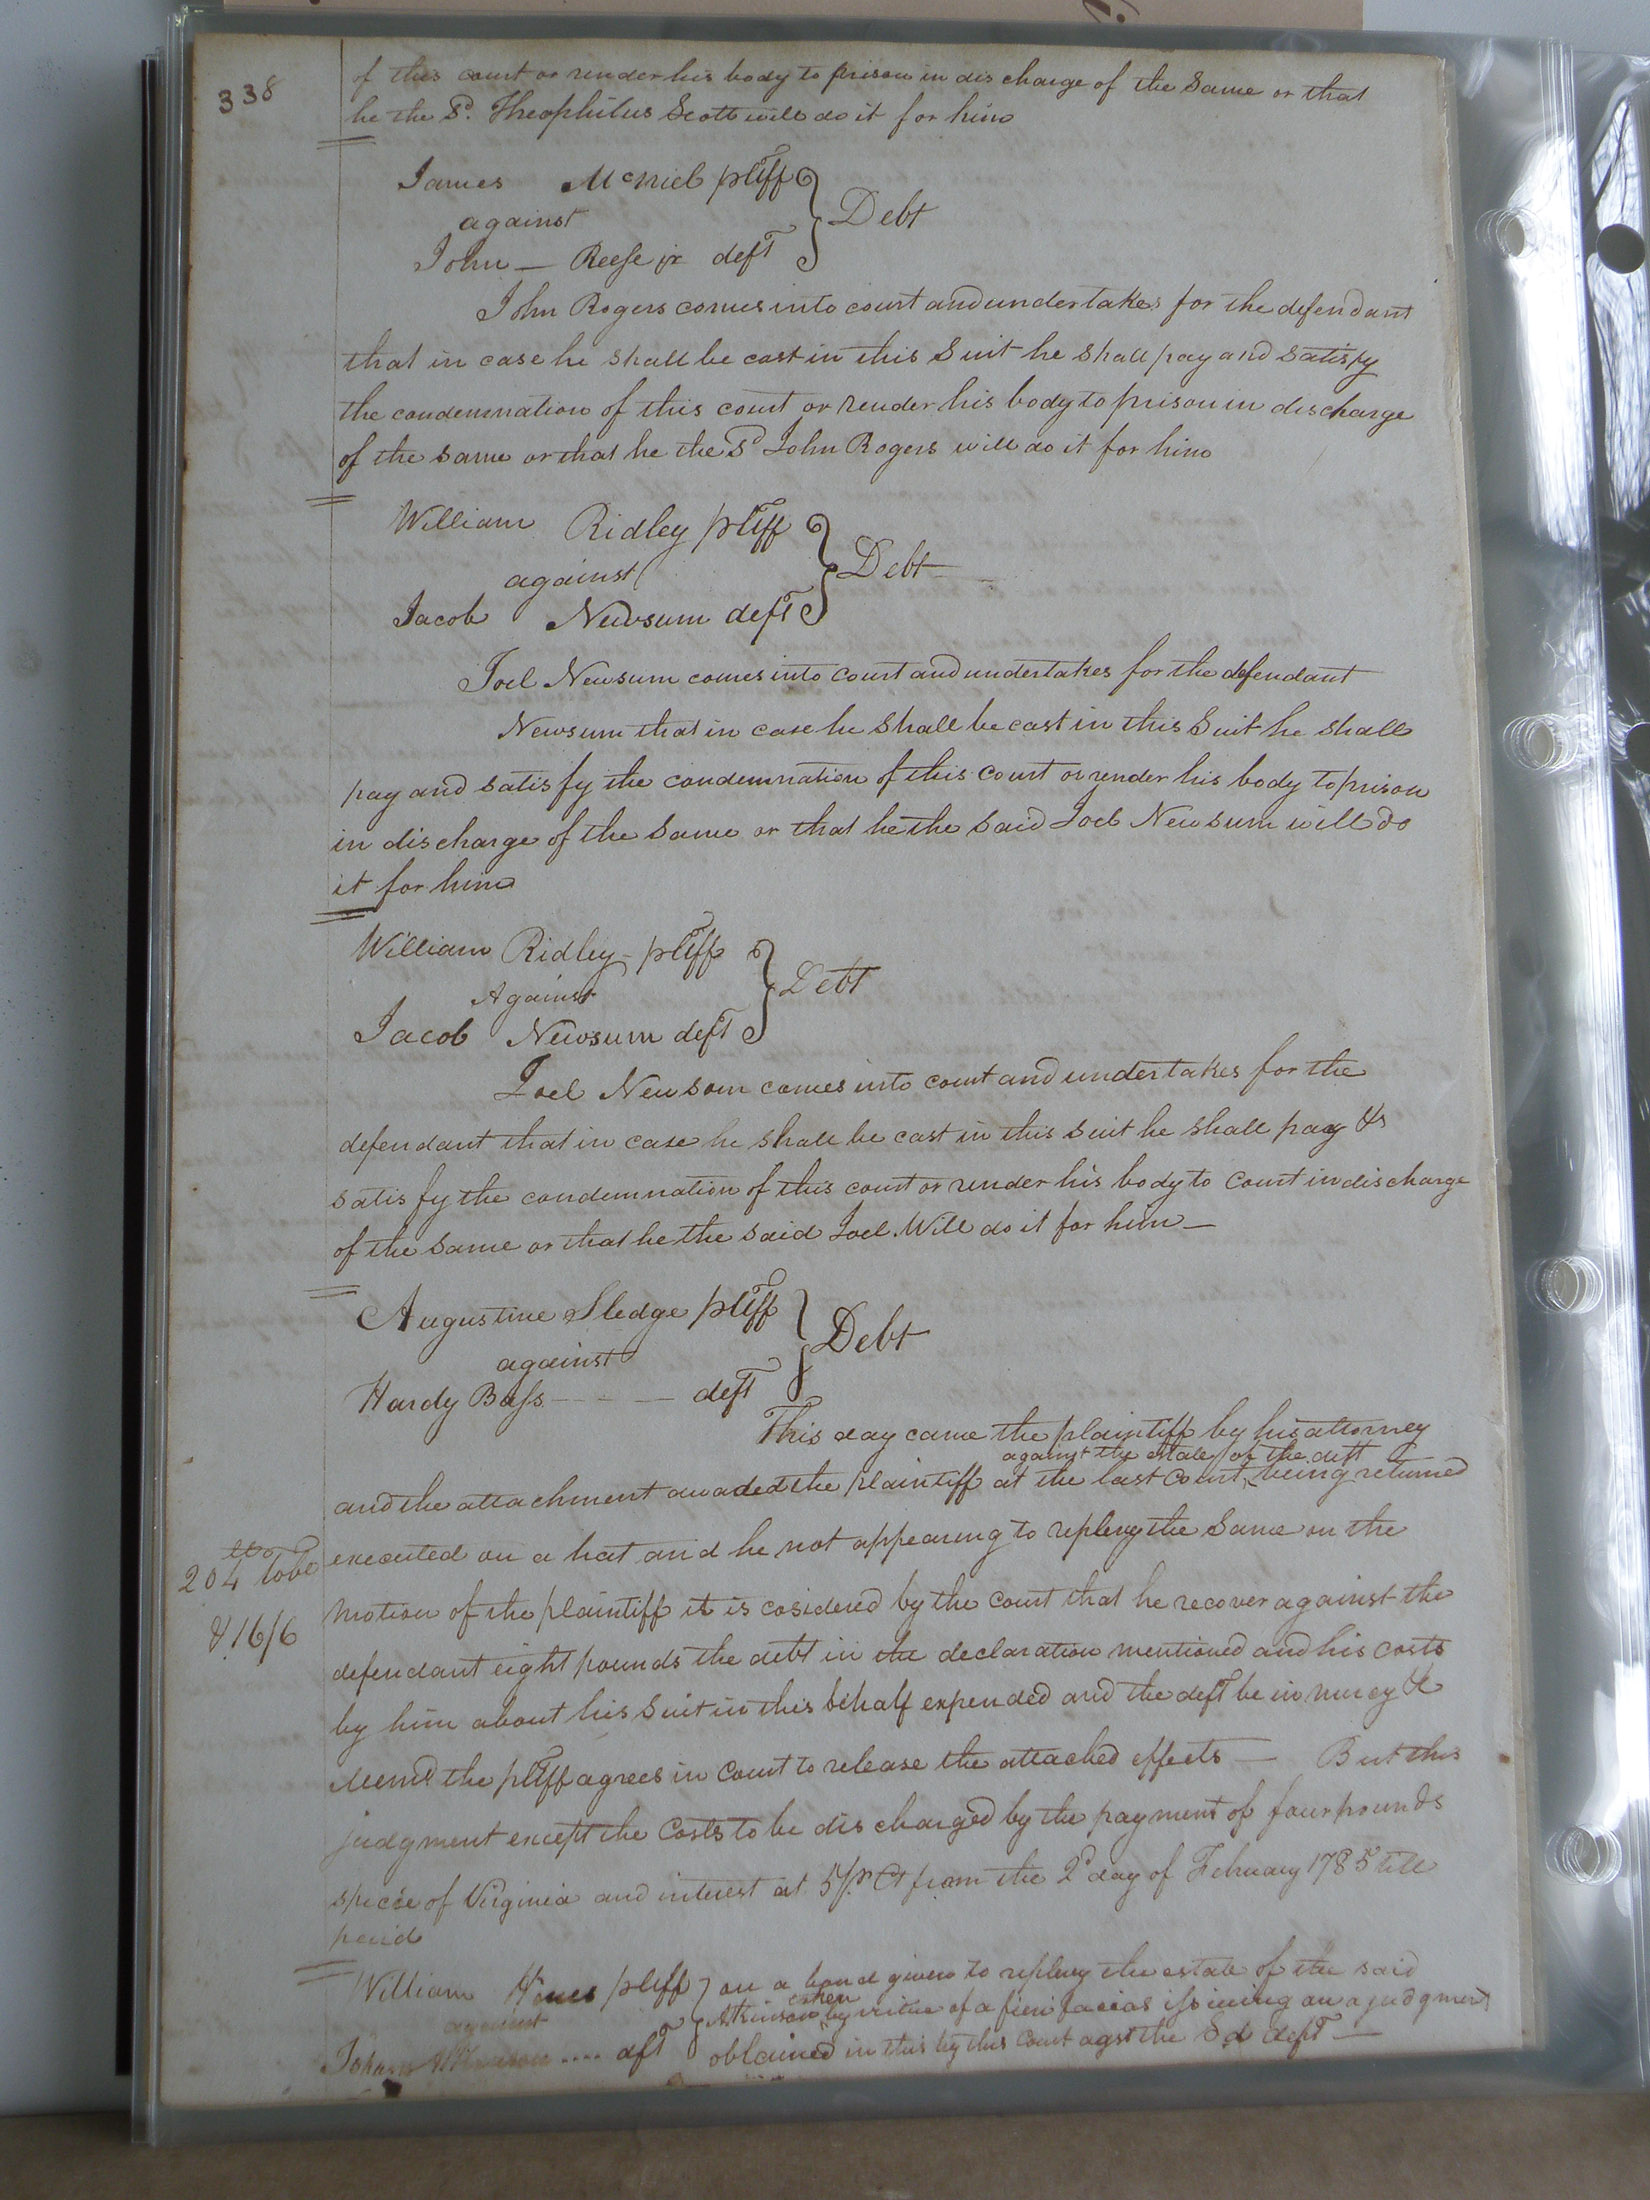 338
of this court or render his body to prison in discharge of the Same or that
he the Sd. Theophilus Scott will do it for him
James McNiel pltff
against
John — Reese jr deft
Debt
John Rogers comes into court and undertakes for the defendant
that in case he shall be cast in this Suit he shall pay and satisfy
the condemnation of this court or render his body to prison in discharge
of the same or that he the Sd John Rogers will do it for him
William Ridley pltff
against
Jacob Newsum deft
Debt
Joel Newsum comes into court and undertakes for the defendant
Newsum that in case he shall be cast in this Suit he shall
pay and satisfy the condemnation of this court or render his body to prison
in discharge of the same or that he the said Joel Newsum will do
it for him
William Ridley - pltff
Against
Jacob Newsum deft
Debt
Joel Newsom comes into court and undertakes for the
defendant that in case he shall be cast in this suit he shall pay &
satisfy the condemnation of this court or render his body to Court in discharge
of the same or that he the said Joel Will do it for him —
Augustine Sledge pltff
against
Hardy Bass - - - - deft
Debt
This day came the plaintiff by his attorney
against the estate of the deft
and the attachment awaded the plaintiff at the last Court, being returned
executed on a hat and he not appearing to replevy the Same on the
204 tobo
& 16/6
motion of the plaintiff it is cosidered by the court that he recover against the
defendant eight pounds the debt in the declaration mentioned and his costs
by him about his Suit in this behalf expended and the deft be in mercy &c
Memd the pltff agrees in Court to release the attached effects — But this
judgment except the Costs to be discharged by the payment of four pounds
specie of Virginia and interest at 5 pr Ct from the 2d day of February 1785 till
paid
William Hines pltff
against
Atkinson .... dft
on a bond given to replevy the estate of the said
taken
Atkinson by virtue of a fieri facias issuing on a judgment
obtained in this by this Court agst the Sd deft —